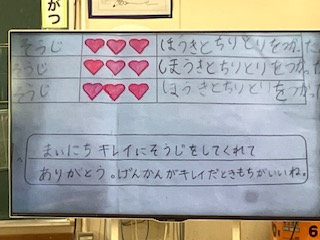 がつ
そうじ ほうきとちりとりをつかった
そうじ ほうきとちりとりをつかっ
そうじ ほうきとちりとりをつかっ
まいにちキレイにそうじをしてくれて
ありがとう。げんかんがキレイだときもちがいいね。
6